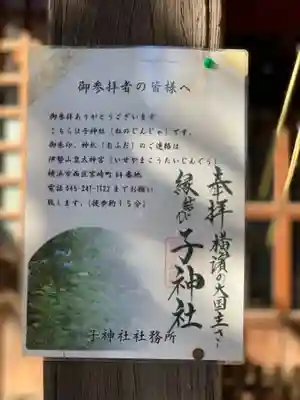 御参拝者の皆様へ
御参拝ありがとうございます
こちらは子神社（ねのじんじゃ）です。
御朱印、神札（おふだ）のご連絡は
伊勢山皇大神宮（いせやまこうたいじんぐう）
横浜市西区宮崎町64番地
電話045-241-1122までお願い
致します。（徒歩約15分）
奉拝 横濱の大国主さま
縁結び 子神社
子神社社務所